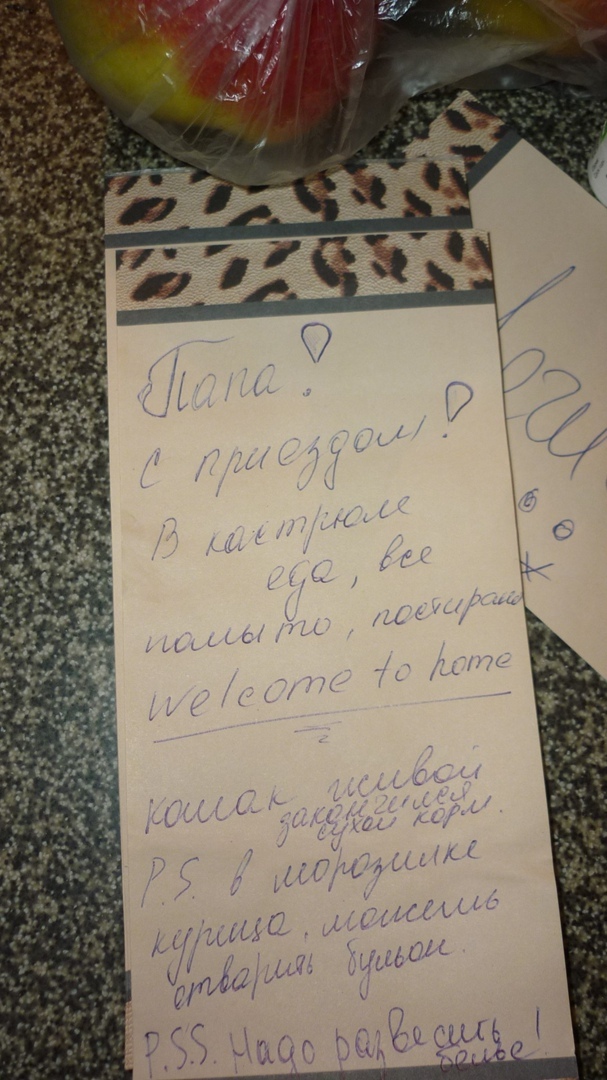 Папа!
С приездом!
В кастрюле
еда, все
помыто, постирано
Welcome to home
Кошак живой
закончился
сухой корм.
P.S. в морозилке
курица, можешь
отварить бульон.
P.S.S. Надо развесить
белье!